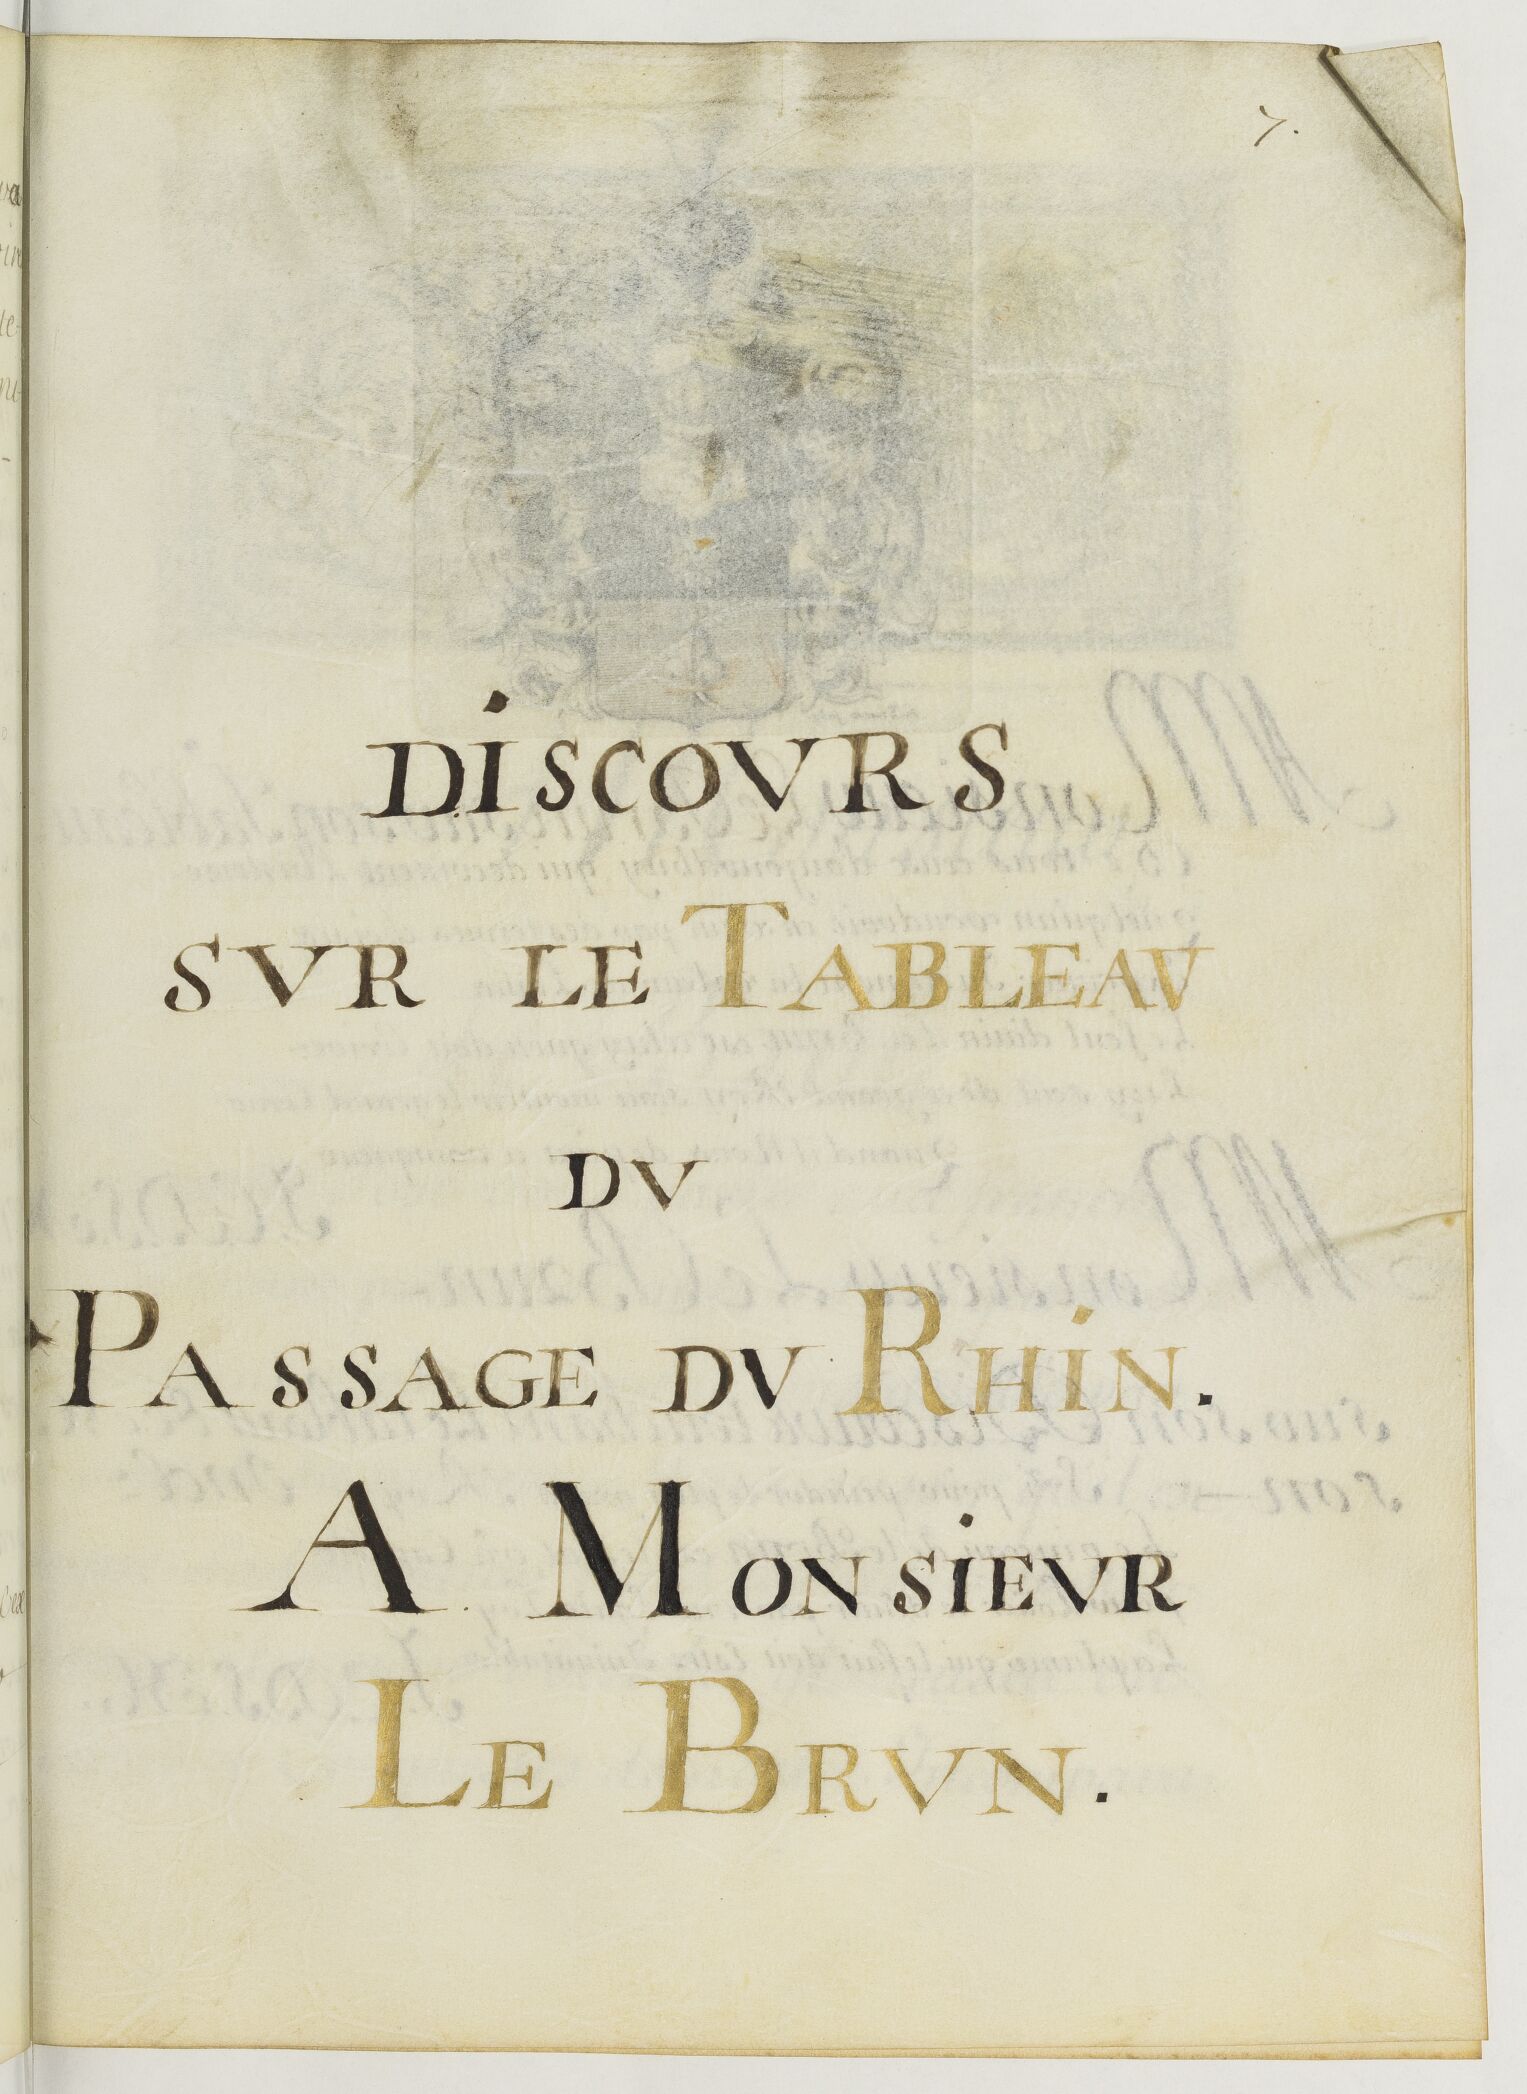 7.
DISCOVRS
SVR LE TABLEAV
DV
PASSAGE DV RHIN.
A MONSIEVR
LE BRVN.